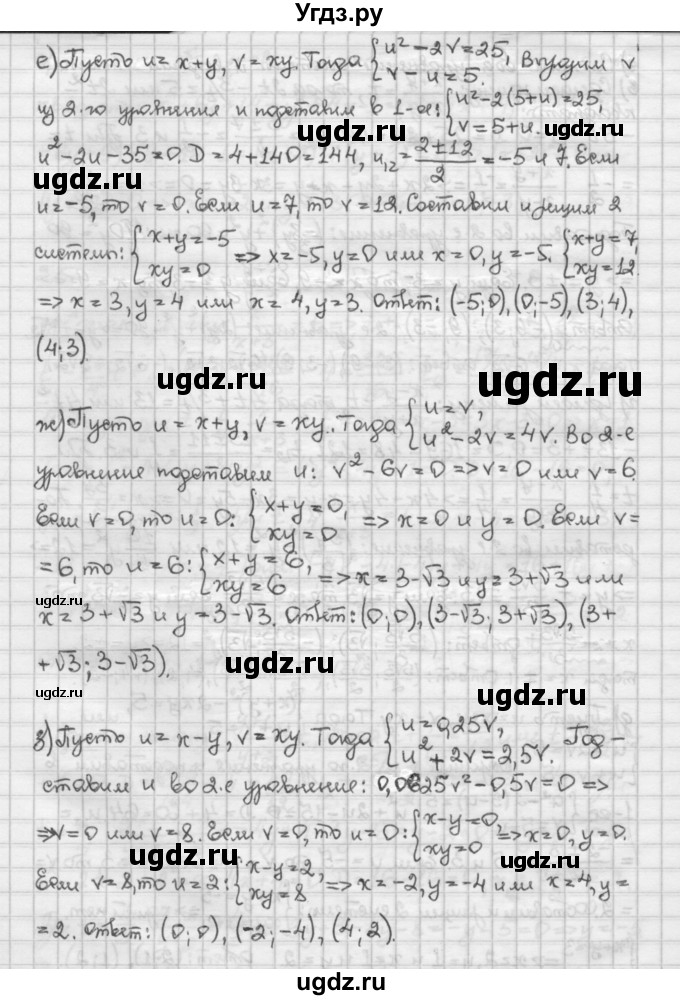 Угдз.ру
е) Пусть u = x+y, v = xy. Тогда { u² − 2v = 25, v − u = 5. Выразим v
из 2-го уравнения и подставим в 1-ое: { u² − 2(5+u) = 25, v = 5+u.
ugdz.ru ugdz.ru
u² − 2u − 35 = 0. D = 4+140 = 144, u₁₂ = (2±12)/2 = −5 и 7. Если
u = −5, то v = 0. Если u = 7, то v = 12. Составим и решим 2
системы: { x+y = −5 xy = 0 => x = −5, y = 0 или x = 0, y = −5. { x+y = 7, xy = 12
=> x = 3, y = 4 или x = 4, y = 3. Ответ: (−5; 0), (0; −5), (3; 4),
(4; 3)
ugdz.ru ugdz.ru
ж) Пусть u = x+y, v = xy. Тогда { u = v, u² − 2v = 4v. Во 2-е
уравнение подставим u: v² − 6v = 0 => v = 0 или v = 6.
ugdz.ru ugdz.ru
Если v = 0, то u = 0: { x+y = 0, xy = 0 => x = 0 и y = 0. Если v =
= 6, то u = 6: { x+y = 6, xy = 6 => x = 3 − √3 и y = 3 + √3 или
ugdz.ru
x = 3 + √3 и y = 3 − √3. Ответ: (0; 0), (3−√3; 3+√3), (3+
+√3; 3−√3).
ugdz.ru ugdz.ru
з) Пусть u = x−y, v = xy. Тогда { u = 0,25v, u² + 2v = 2,5v. Под-
ставим u во 2-е уравнение: 0,0625v² − 0,5v = 0 =>
ugdz.ru
=> v = 0 или v = 8. Если v = 0, то u = 0: { x−y = 0, xy = 0 => x = 0, y = 0.
ugdz.ru ugdz.ru
Если v = 8, то u = 2: { x−y = 2, xy = 8 => x = −2, y = −4 или x = 4, y =
= 2. Ответ: (0; 0), (−2; −4), (4; 2).
ugdz.ru ugdz.ru
ugdz.ru